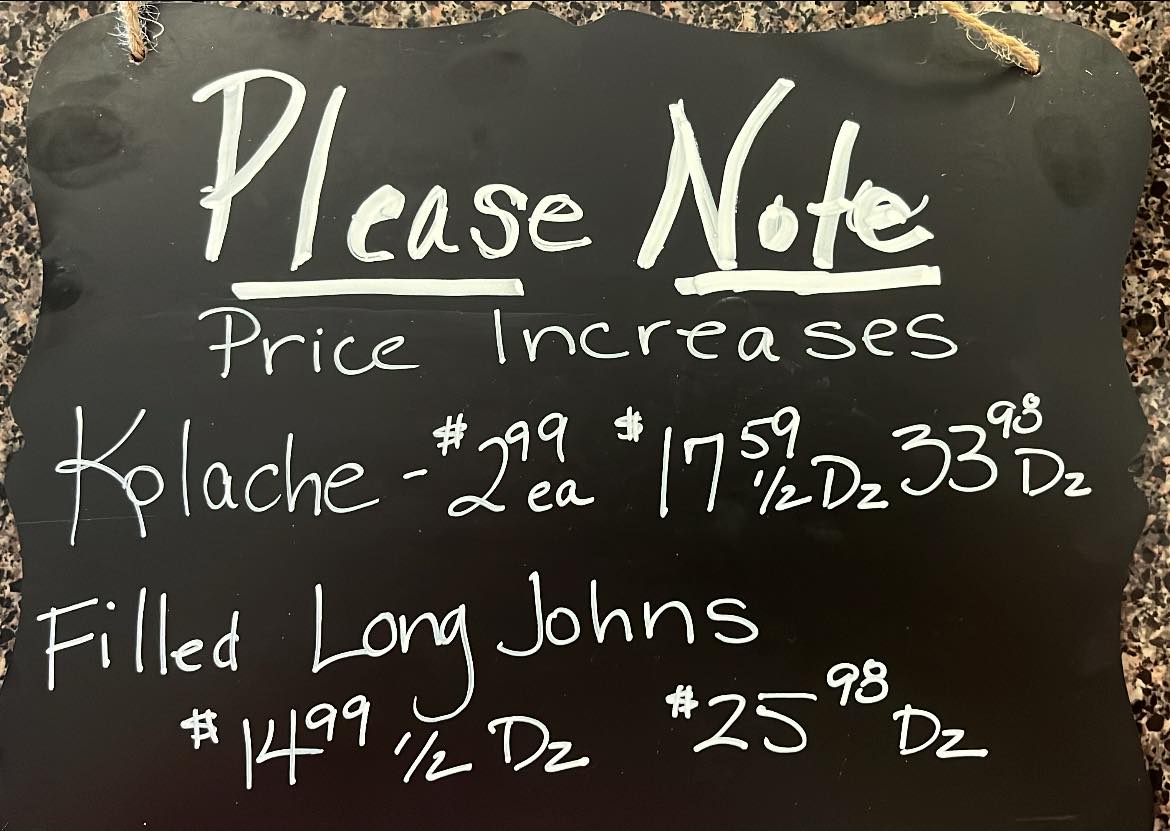 Please Note
Price Increases
Kolache - $2.99 ea $17.59 1/2 Dz 33.98 Dz
Filled Long Johns
$14.99 1/2 Dz $25.98 Dz